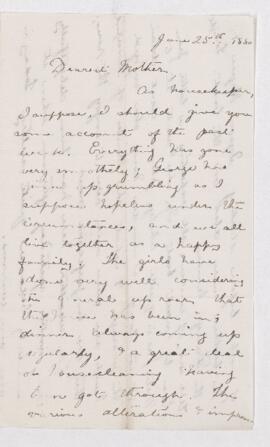 June 25th, 1880
Dearest Mother,
As housekeeper,
I suppose, I should give you
some account of the past
week. Everything has gone
very smoothely; George has
given up grumbling as I
suppose hopeless under the
circumstances, and we all
live together as a happy
family. The girls have
done very well considering
the general up roar that
the house has been in;
dinner always coming up
regularly, & a great deal
of housecleaning having
been got through. The
various alterations & improve-